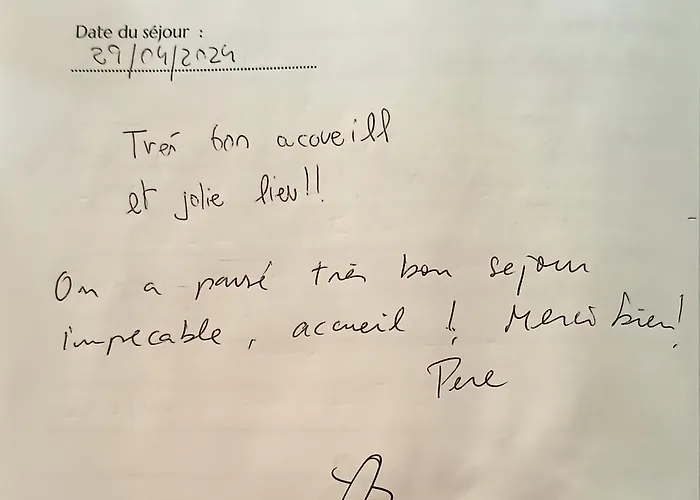 Date du séjour :
29/04/2024
Tres bon acoveill
et jolie lieu!!
On a passé très bon sejour
impecable, accueil ! Merci bien!
Pere